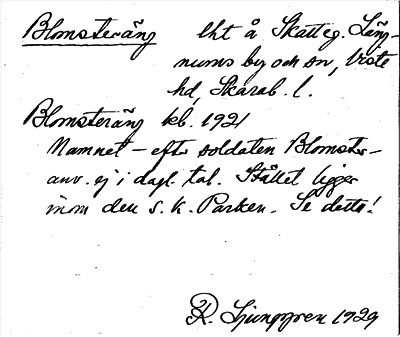 Blomsteräng lht å Skatteg. Lång-
nums by och sn, Viste
hd, Skarab. l.
Blomsteräng kb. 1921
Namnet – efter soldaten Blomster–
anv. ej i dagl. tal. Stället ligger
inom den s. k. Parken. Se detta!
R. Ljunggren 1929